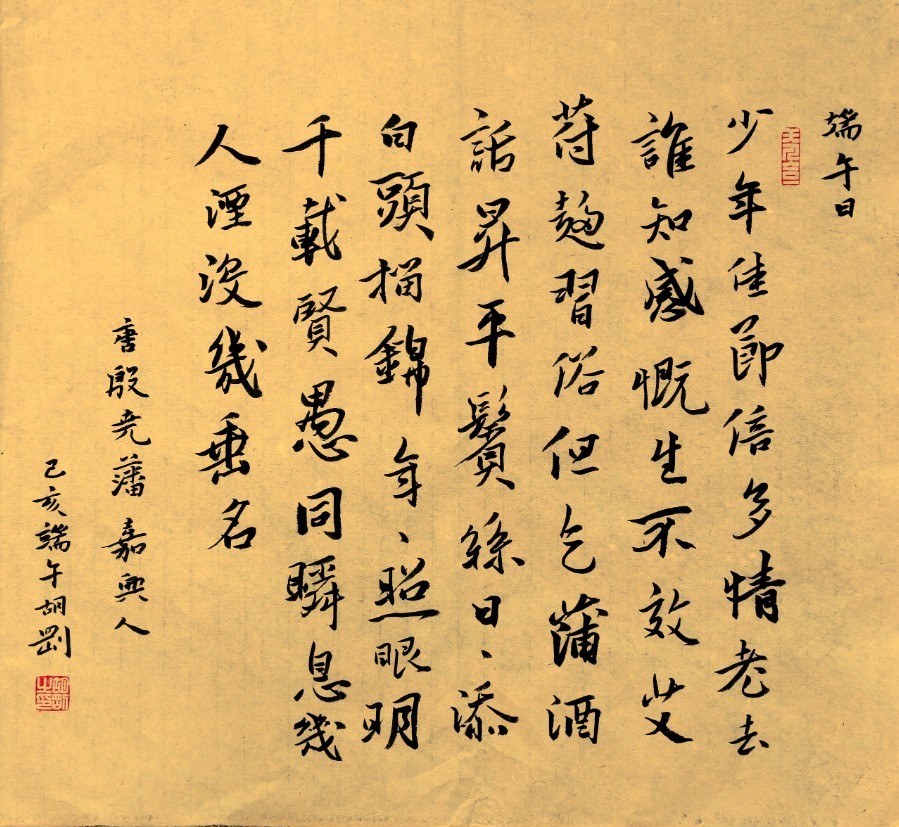 端午日
少年佳節倍多情老去
誰知感慨生不效艾
苻趨習俗但乞蒲酒
話昇平鬢絲日、添
白頭榴錦年、照眼明
千載賢愚同瞬息幾
人湮没幾垂名
唐殷堯藩嘉興人
己亥端午胡劉